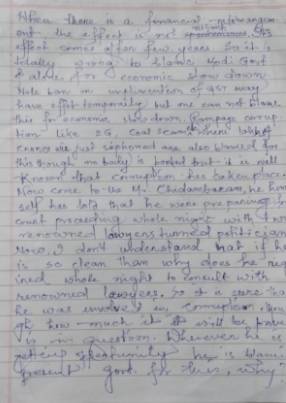 When there is a financial
out the effect is not Its
effect comes after few years. So it is
totally wrong to blame Modi Govt
alone for economic slow down.
Note ban or of GST may
have effect temporarily but one can not blame
this for economic slow down. Rampage corrup
tion like 2G, Coal scams where
are also blamed for
this though no body is but it is well
known that corruption has taken place.
Now come to us Mr. Chidambaram, he him
self has told that he were preparing for
court proceeding whole night with two
renowned lawyers turned politician
Now, I don't understand that if he
is so clean than why does he req
uired whole night to consult with
renowned lawyers. So it is sure that
he was involved in corruption, thou
gh how much it will be
is in question. Whenever he is
getting opportunity he is
present govt. for this, why?